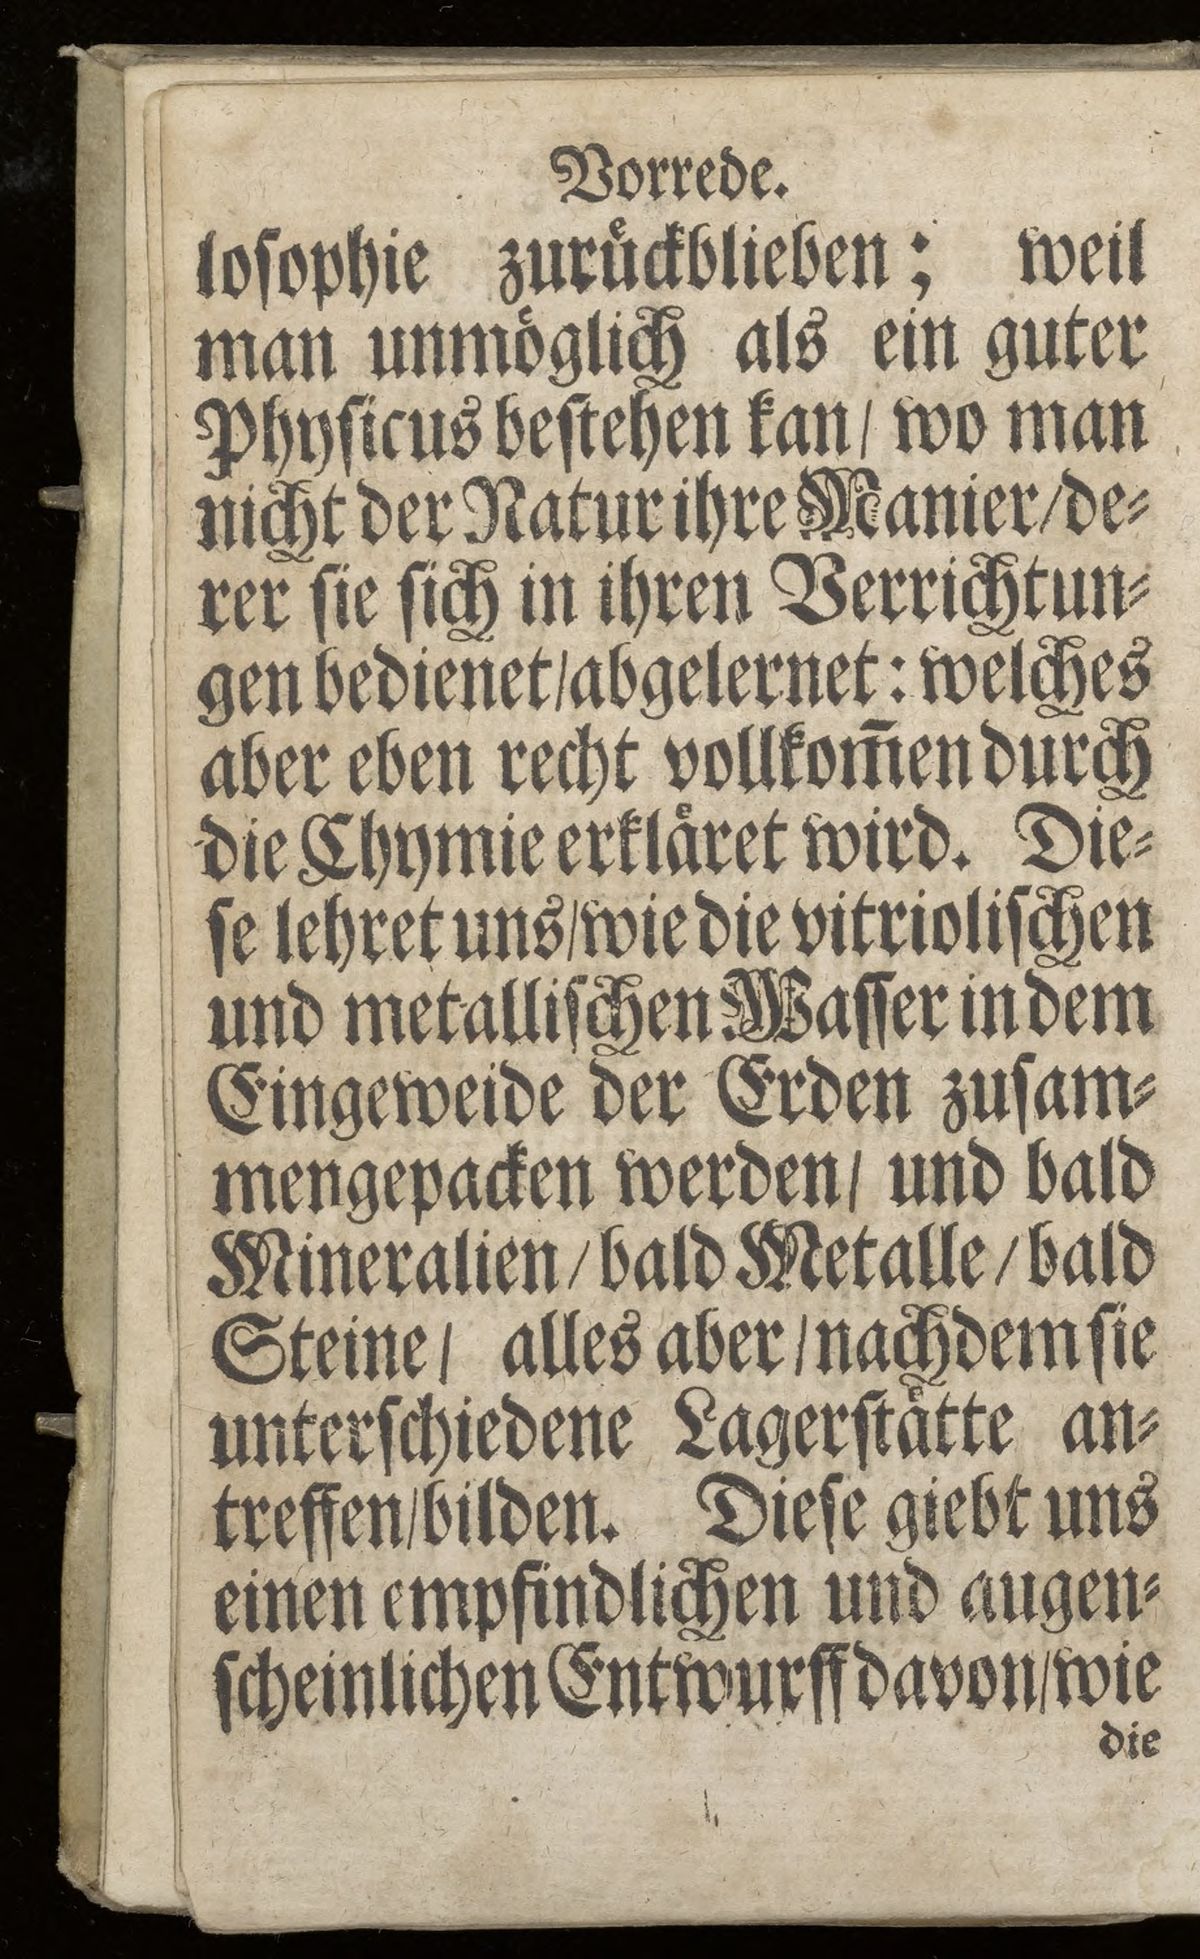 Vorrede.
loſophie zuruͤckblieben; weil
man unmoͤglich als ein guter
Phyſicus beſtehen kan/ wo man
nicht der Natur ihre Manier/de⸗
rer ſie ſich in ihren Verrichtun⸗
gen bedienet/abgelernet: welches
aber eben recht vollkom̄en durch
die Chymie erklaͤret wird. Die⸗
ſe lehret uns/wie die vitrioliſchen
und metalliſchen Waſſer in dem
Eingeweide der Erden zuſam⸗
mengepacken werden/ und bald
Mineralien/bald Metalle/bald
Steine/ alles aber/nachdem ſie
unterſchiedene Lagerſtaͤtte an⸗
treffen/bilden. Dieſe giebt uns
einen empfindlichen und augen⸗
ſcheinlichen Entwurff davon/wie
die